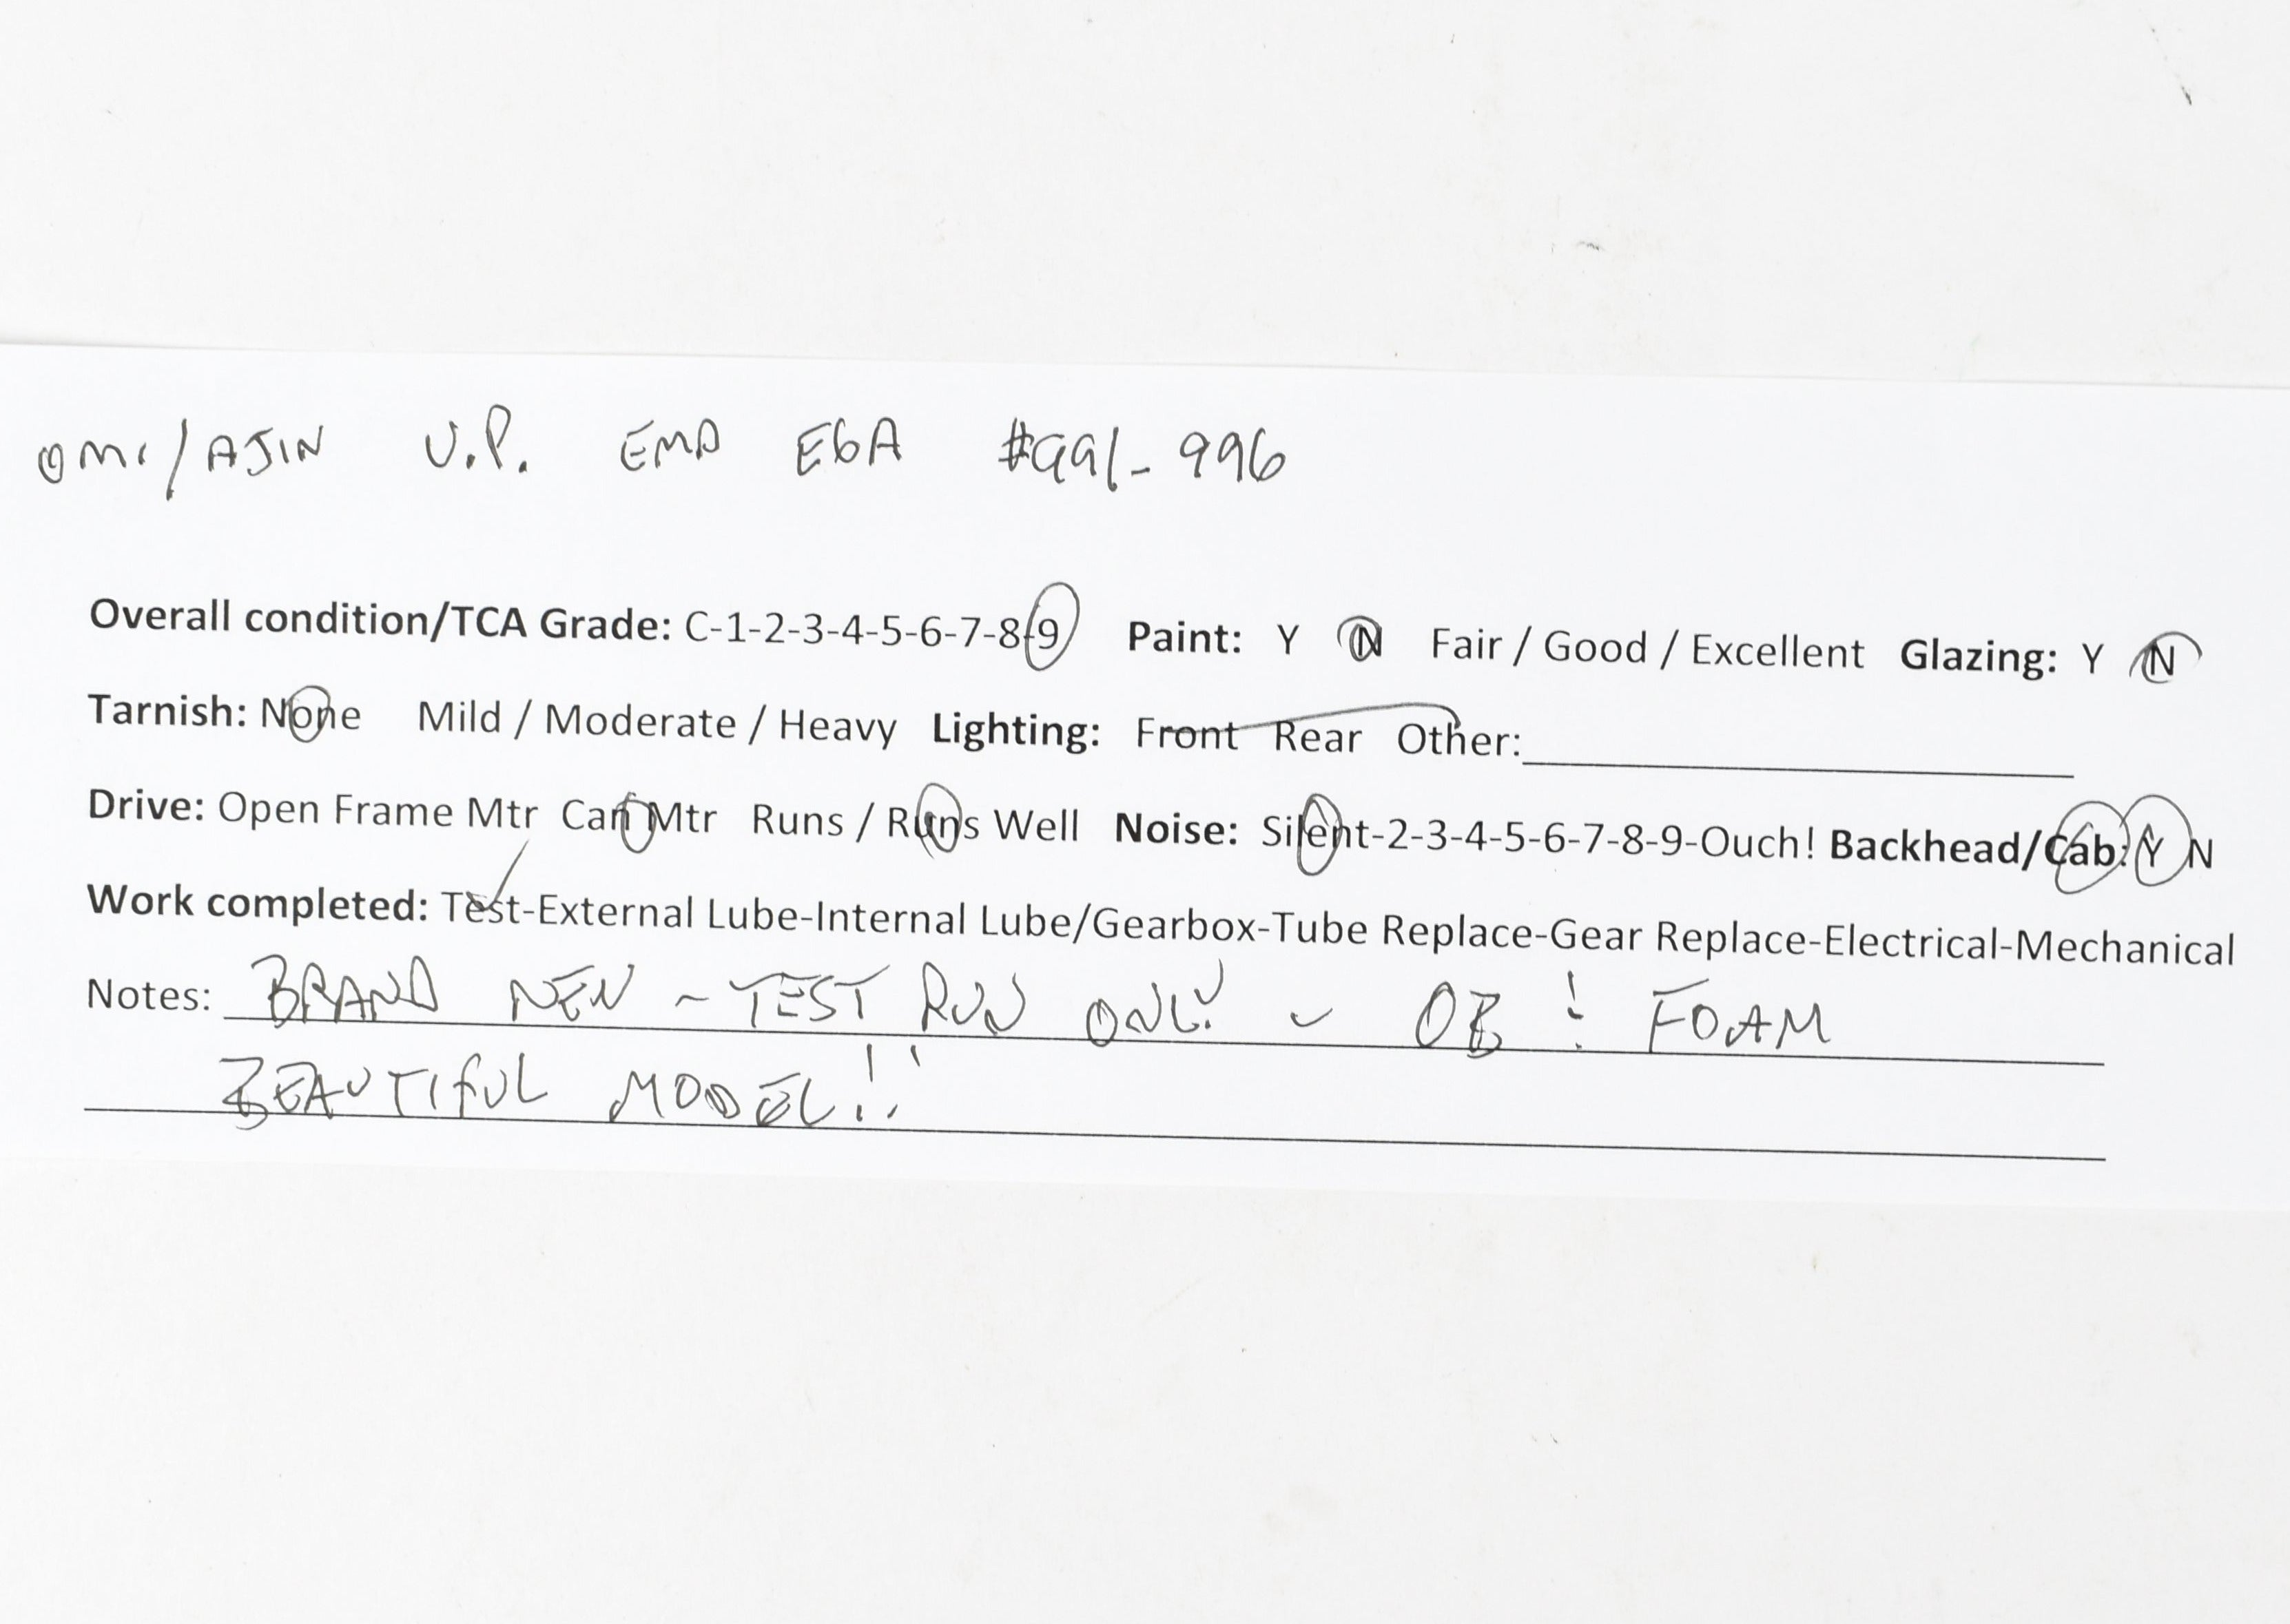 OMI/AJIN U.P. EMD E6A #991-996
Overall condition/TCA Grade: C-1-2-3-4-5-6-7-8-9 Paint: Y N Fair / Good / Excellent Glazing: Y N
Tarnish: None Mild / Moderate / Heavy Lighting: Front Rear Other:
Drive: Open Frame Mtr Can Mtr Runs / Runs Well Noise: Silent-2-3-4-5-6-7-8-9-Ouch! Backhead/Cab: Y N
Work completed: Test-External Lube-Internal Lube/Gearbox-Tube Replace-Gear Replace-Electrical-Mechanical
Notes: BRAND NEW ~ TEST RUN ONLY ~ OB ! FOAM
BEAUTIFUL MODEL!!